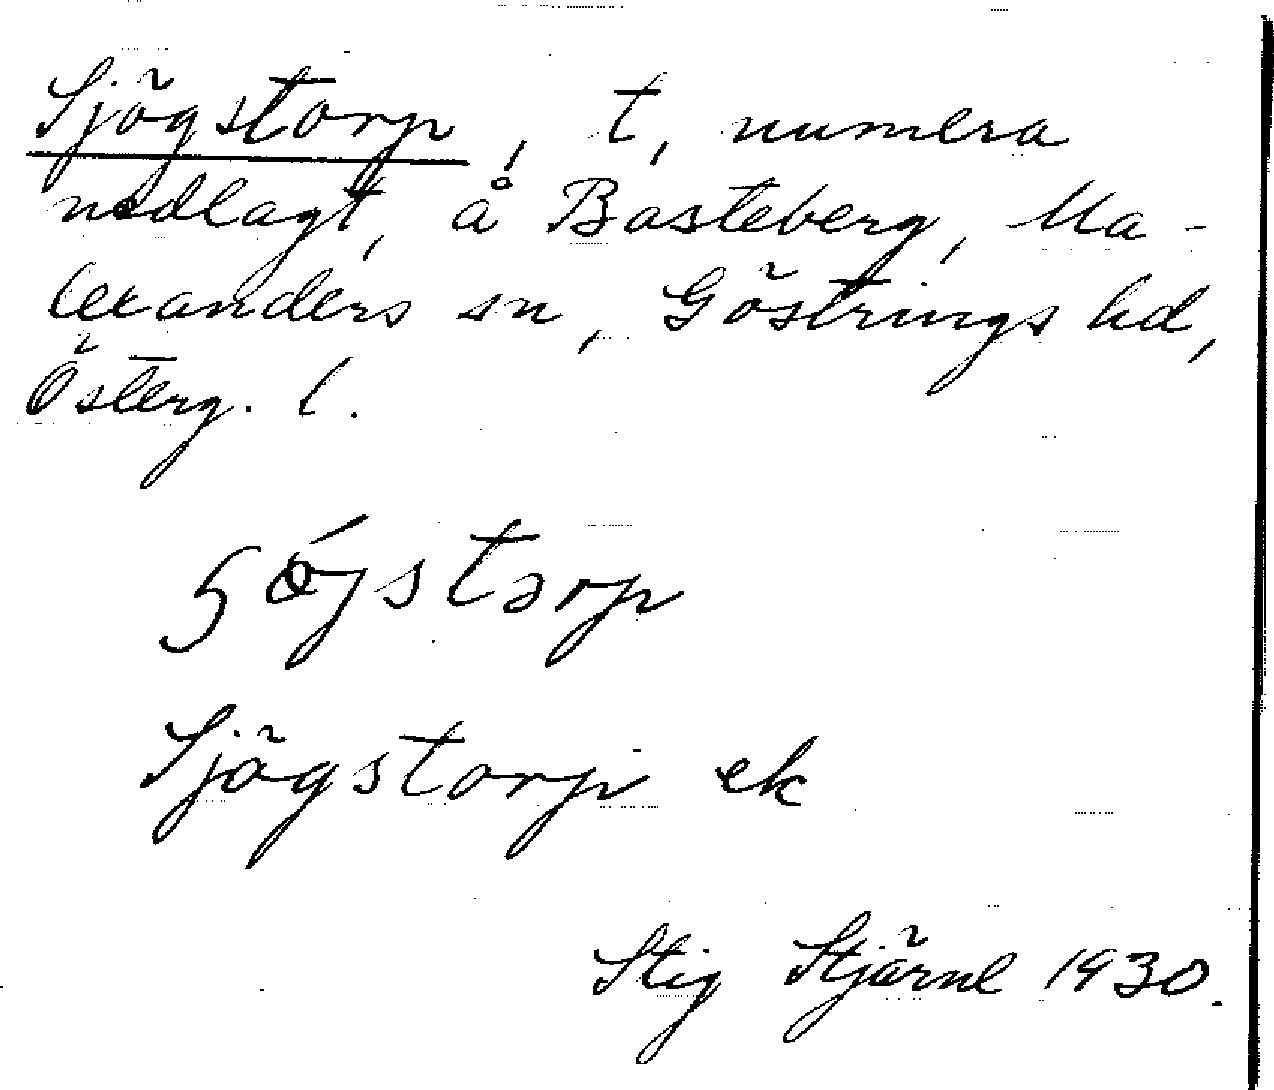 Sjögstorp, t, numera
nedlagt, å Basteberg, Ma-
lexanders sn, Göstrings hd,
Österg. l.
Sjögstorp ek
Stig Stjärne 1930.